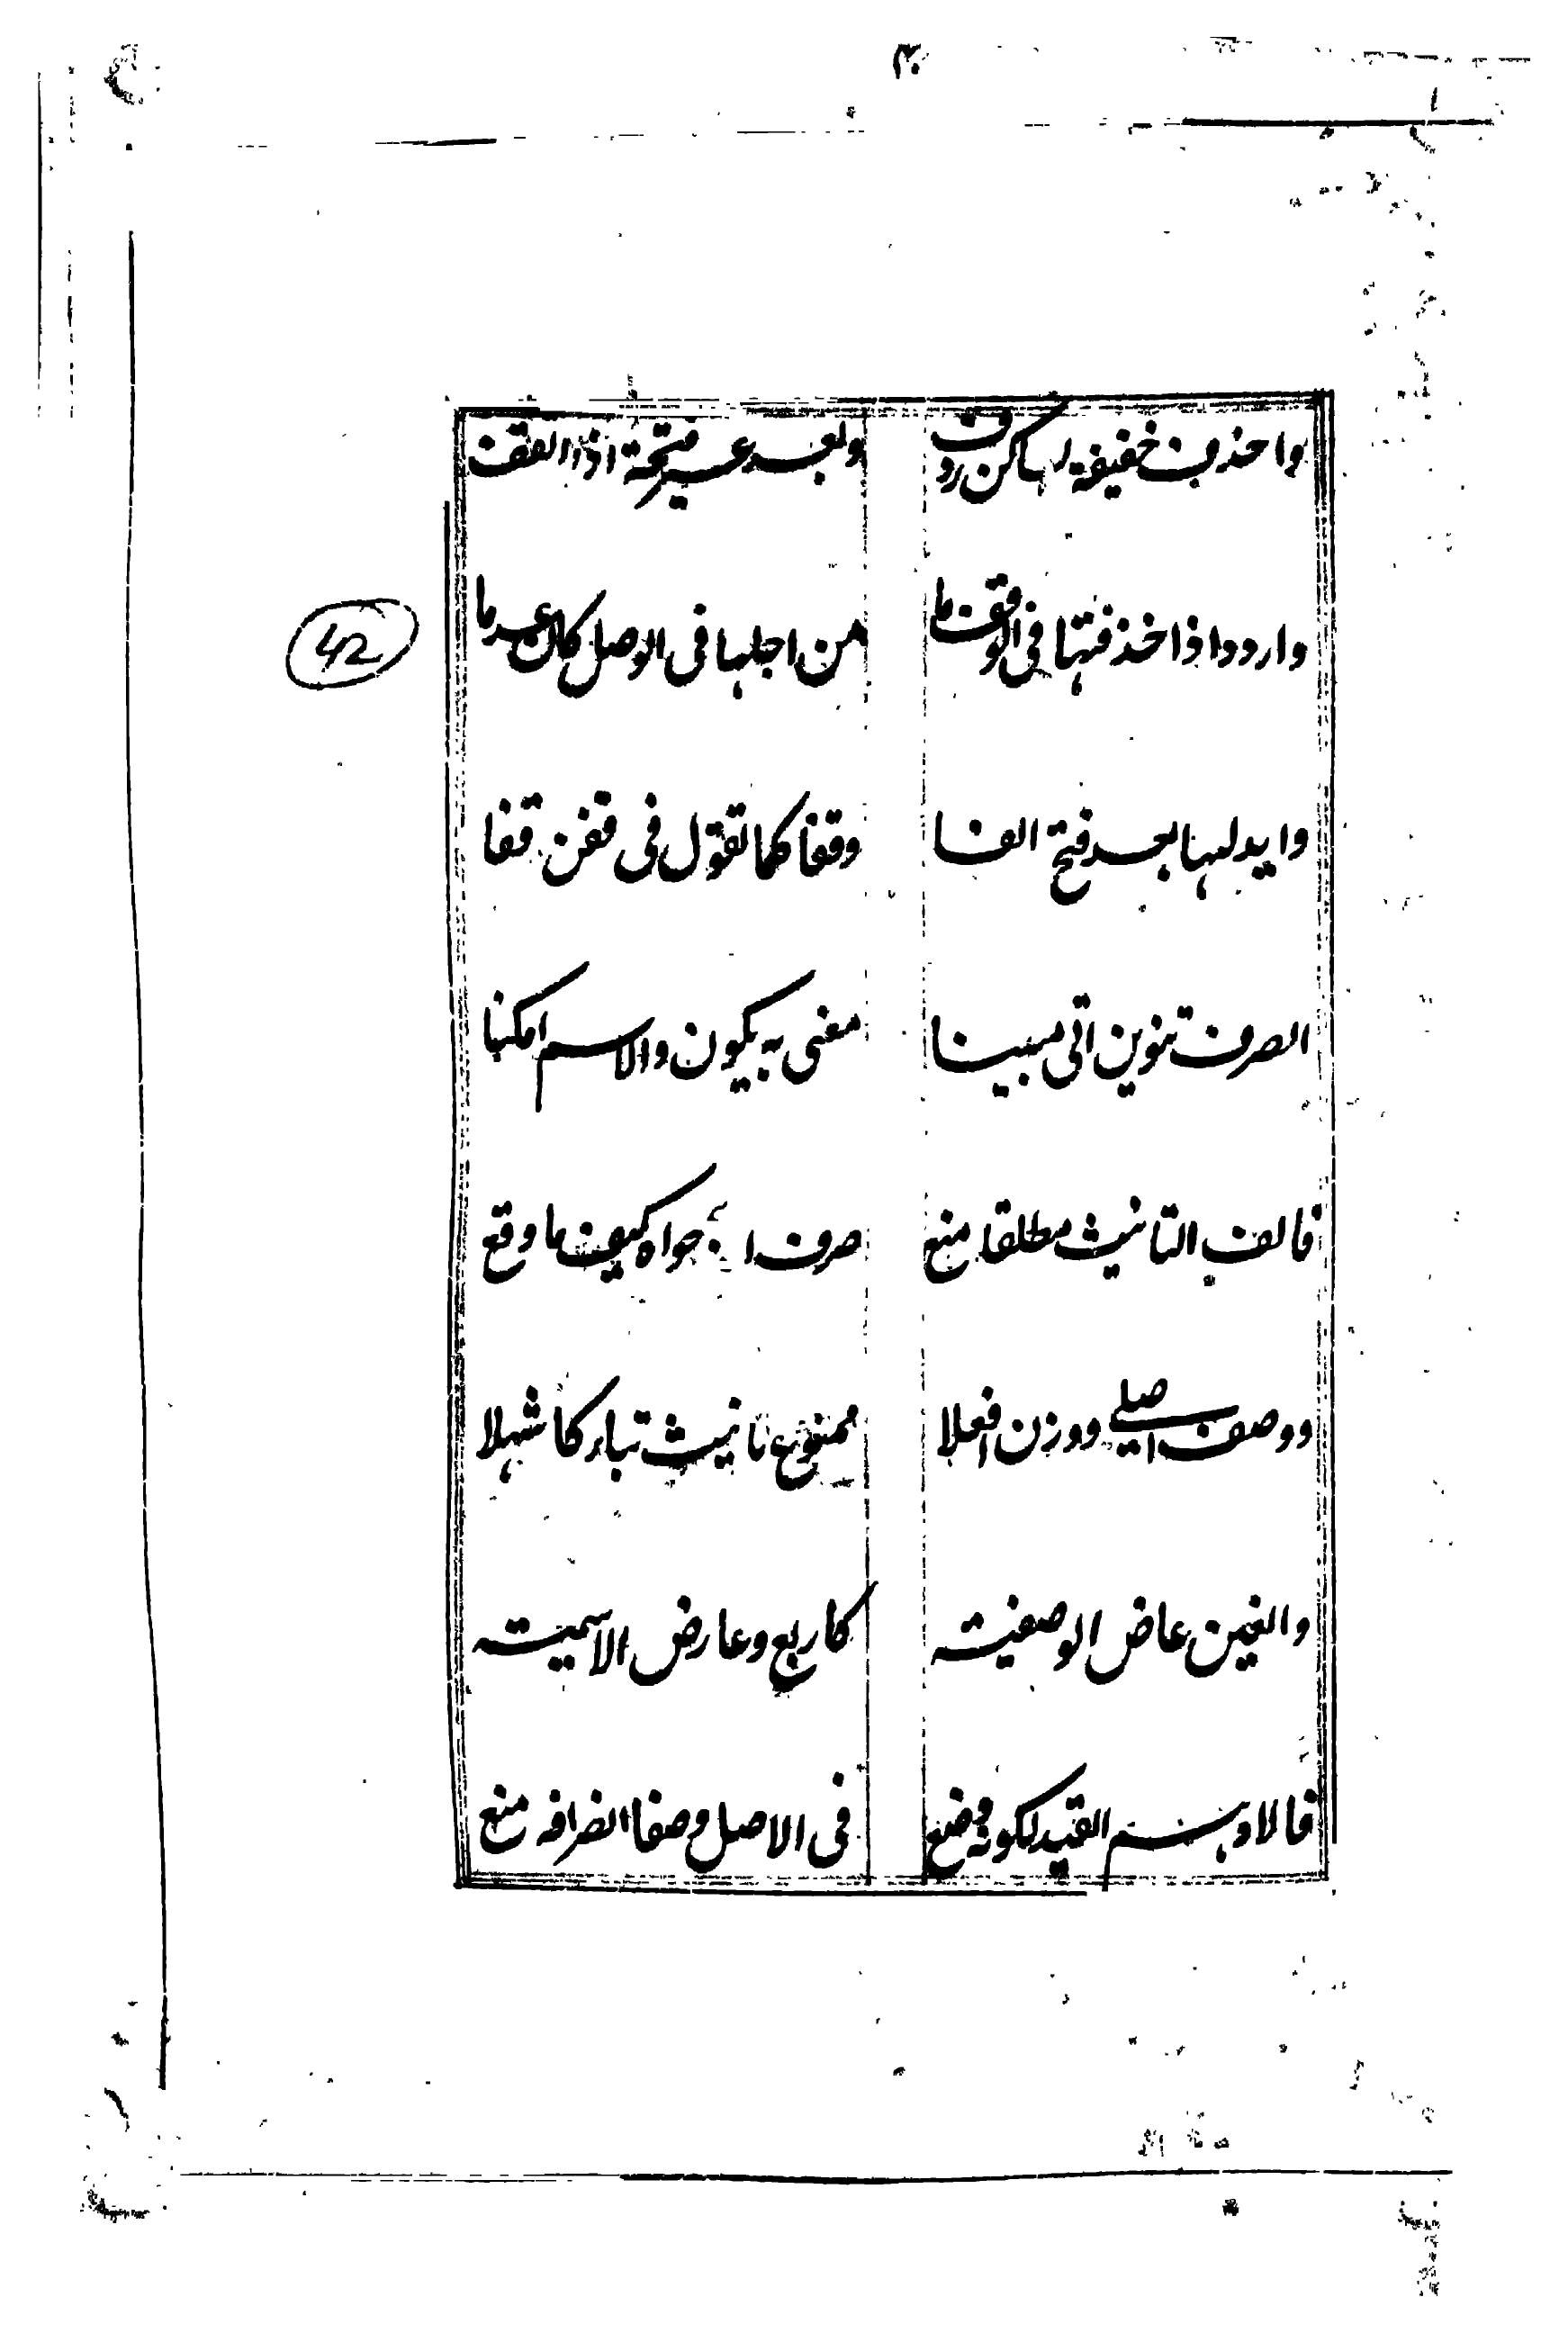 واحذف خفيفة لساكن ردف وبعد غير فتحة اذا تقف
واردد اذا حذفتها فى الوقف ما من اجلها فى الوصل كان عدما
وابدلنها بعد فتح الفا وقفا كما تقول فى قفن قفا
الصرف تنوين اتى مبينا معنى به يكون الاسم امكنا
فالف التانيث مطلقا منع صرف الذى حواه كيف ما وقع
ووصف اصلى ووزن افعلا ممنوع تانيث بتاء كاشهلا
والغين عاض الوصفيته كاربع وعارض الاسميته
فالادهم القيد لكونه وضع فى الاصل وصفا انصرافه منع
42